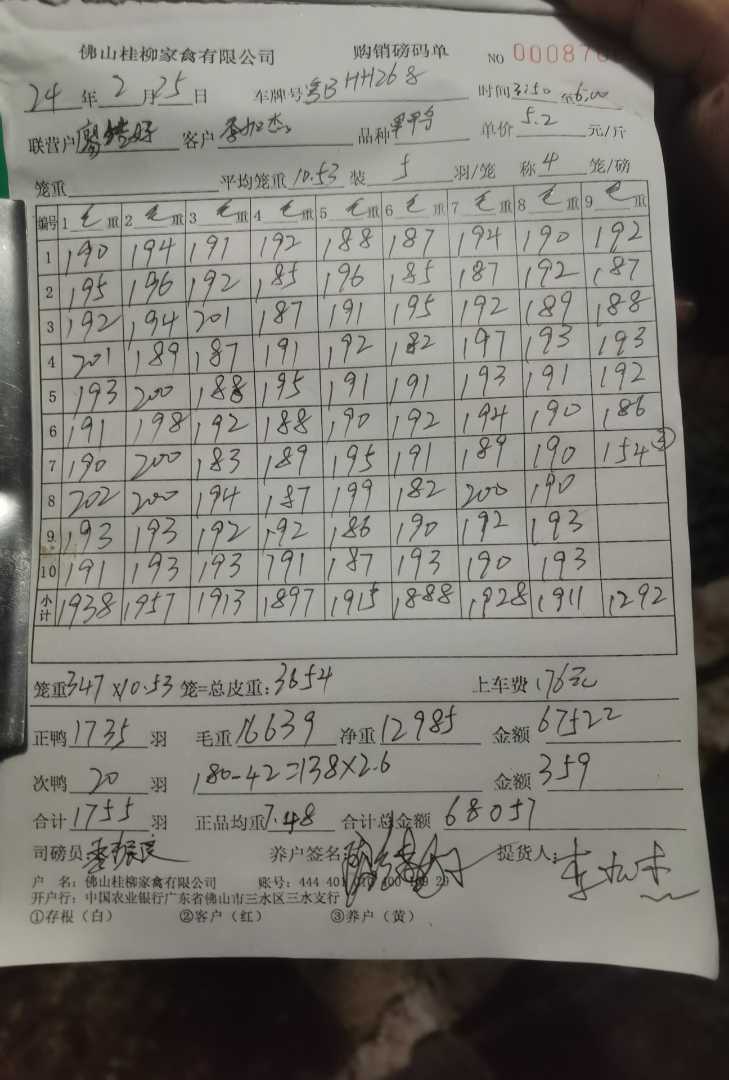 佛山桂柳家禽有限公司 购销磅码单 NO 00087
24年2月25日 车牌号粤BHH268 时间3:50至6:00
联营户 客户李加杰 品种 单价5.2元/斤
笼重 平均笼重10.53 装5羽/笼 称4笼/磅
编号 1毛重 2毛重 3毛重 4毛重 5毛重 6毛重 7毛重 8毛重 9毛重
1 190 194 191 192 188 187 194 190 192
2 195 196 192 185 196 185 187 192 187
3 192 194 201 187 191 195 192 189 188
4 201 189 187 191 192 182 197 193 193
5 193 200 188 195 191 191 193 191 192
6 191 198 192 188 190 192 194 190 186
7 190 200 183 189 195 191 189 190 154③
8 202 200 194 187 199 182 200 190
9 193 193 192 192 186 190 192 193
10 191 193 193 191 187 193 190 193
小计 1938 1957 1913 1897 1915 1888 1928 1911 1292
笼重347×10.53笼=总皮重:3654 上车费176元
正鸭1735羽 毛重16639 净重12985 金额67522
次鸭20羽 180-42=138×2.6 金额359
合计1755羽 正品均重7.48 合计总金额68057
司磅员李振良 养户签名: 提货人:李加杰
户 名:佛山桂柳家禽有限公司 账号:444 401
开户行:中国农业银行广东省佛山市三水区三水支行
①存根(白) ②客户(红) ③养户(黄)